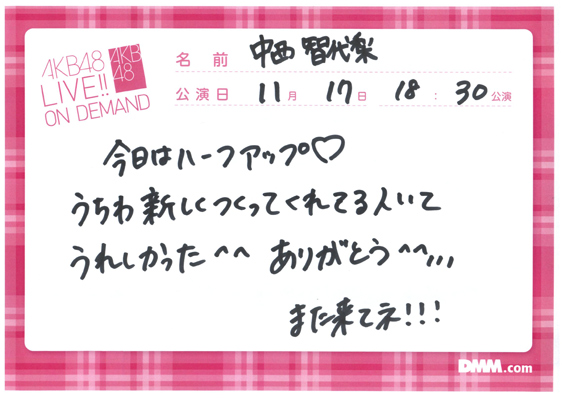 AKB48
LIVE!!
ON DEMAND
AKB
48
名前 中西智代梨
公演日 11月 17日 18:30公演
今日はハーフアップ♡
うちわ新しくつくってくれてる人いて
うれしかった^^ ありがとう^^,,,
また来てネ!!!
DMM.com